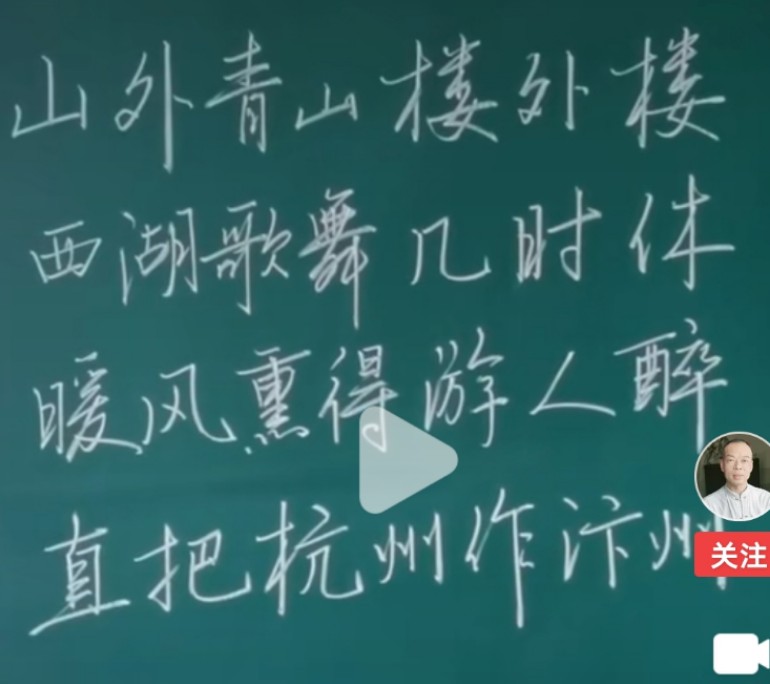 山外青山楼外楼
西湖歌舞几时休
暖风熏得游人醉
直把杭州作汴州
关注